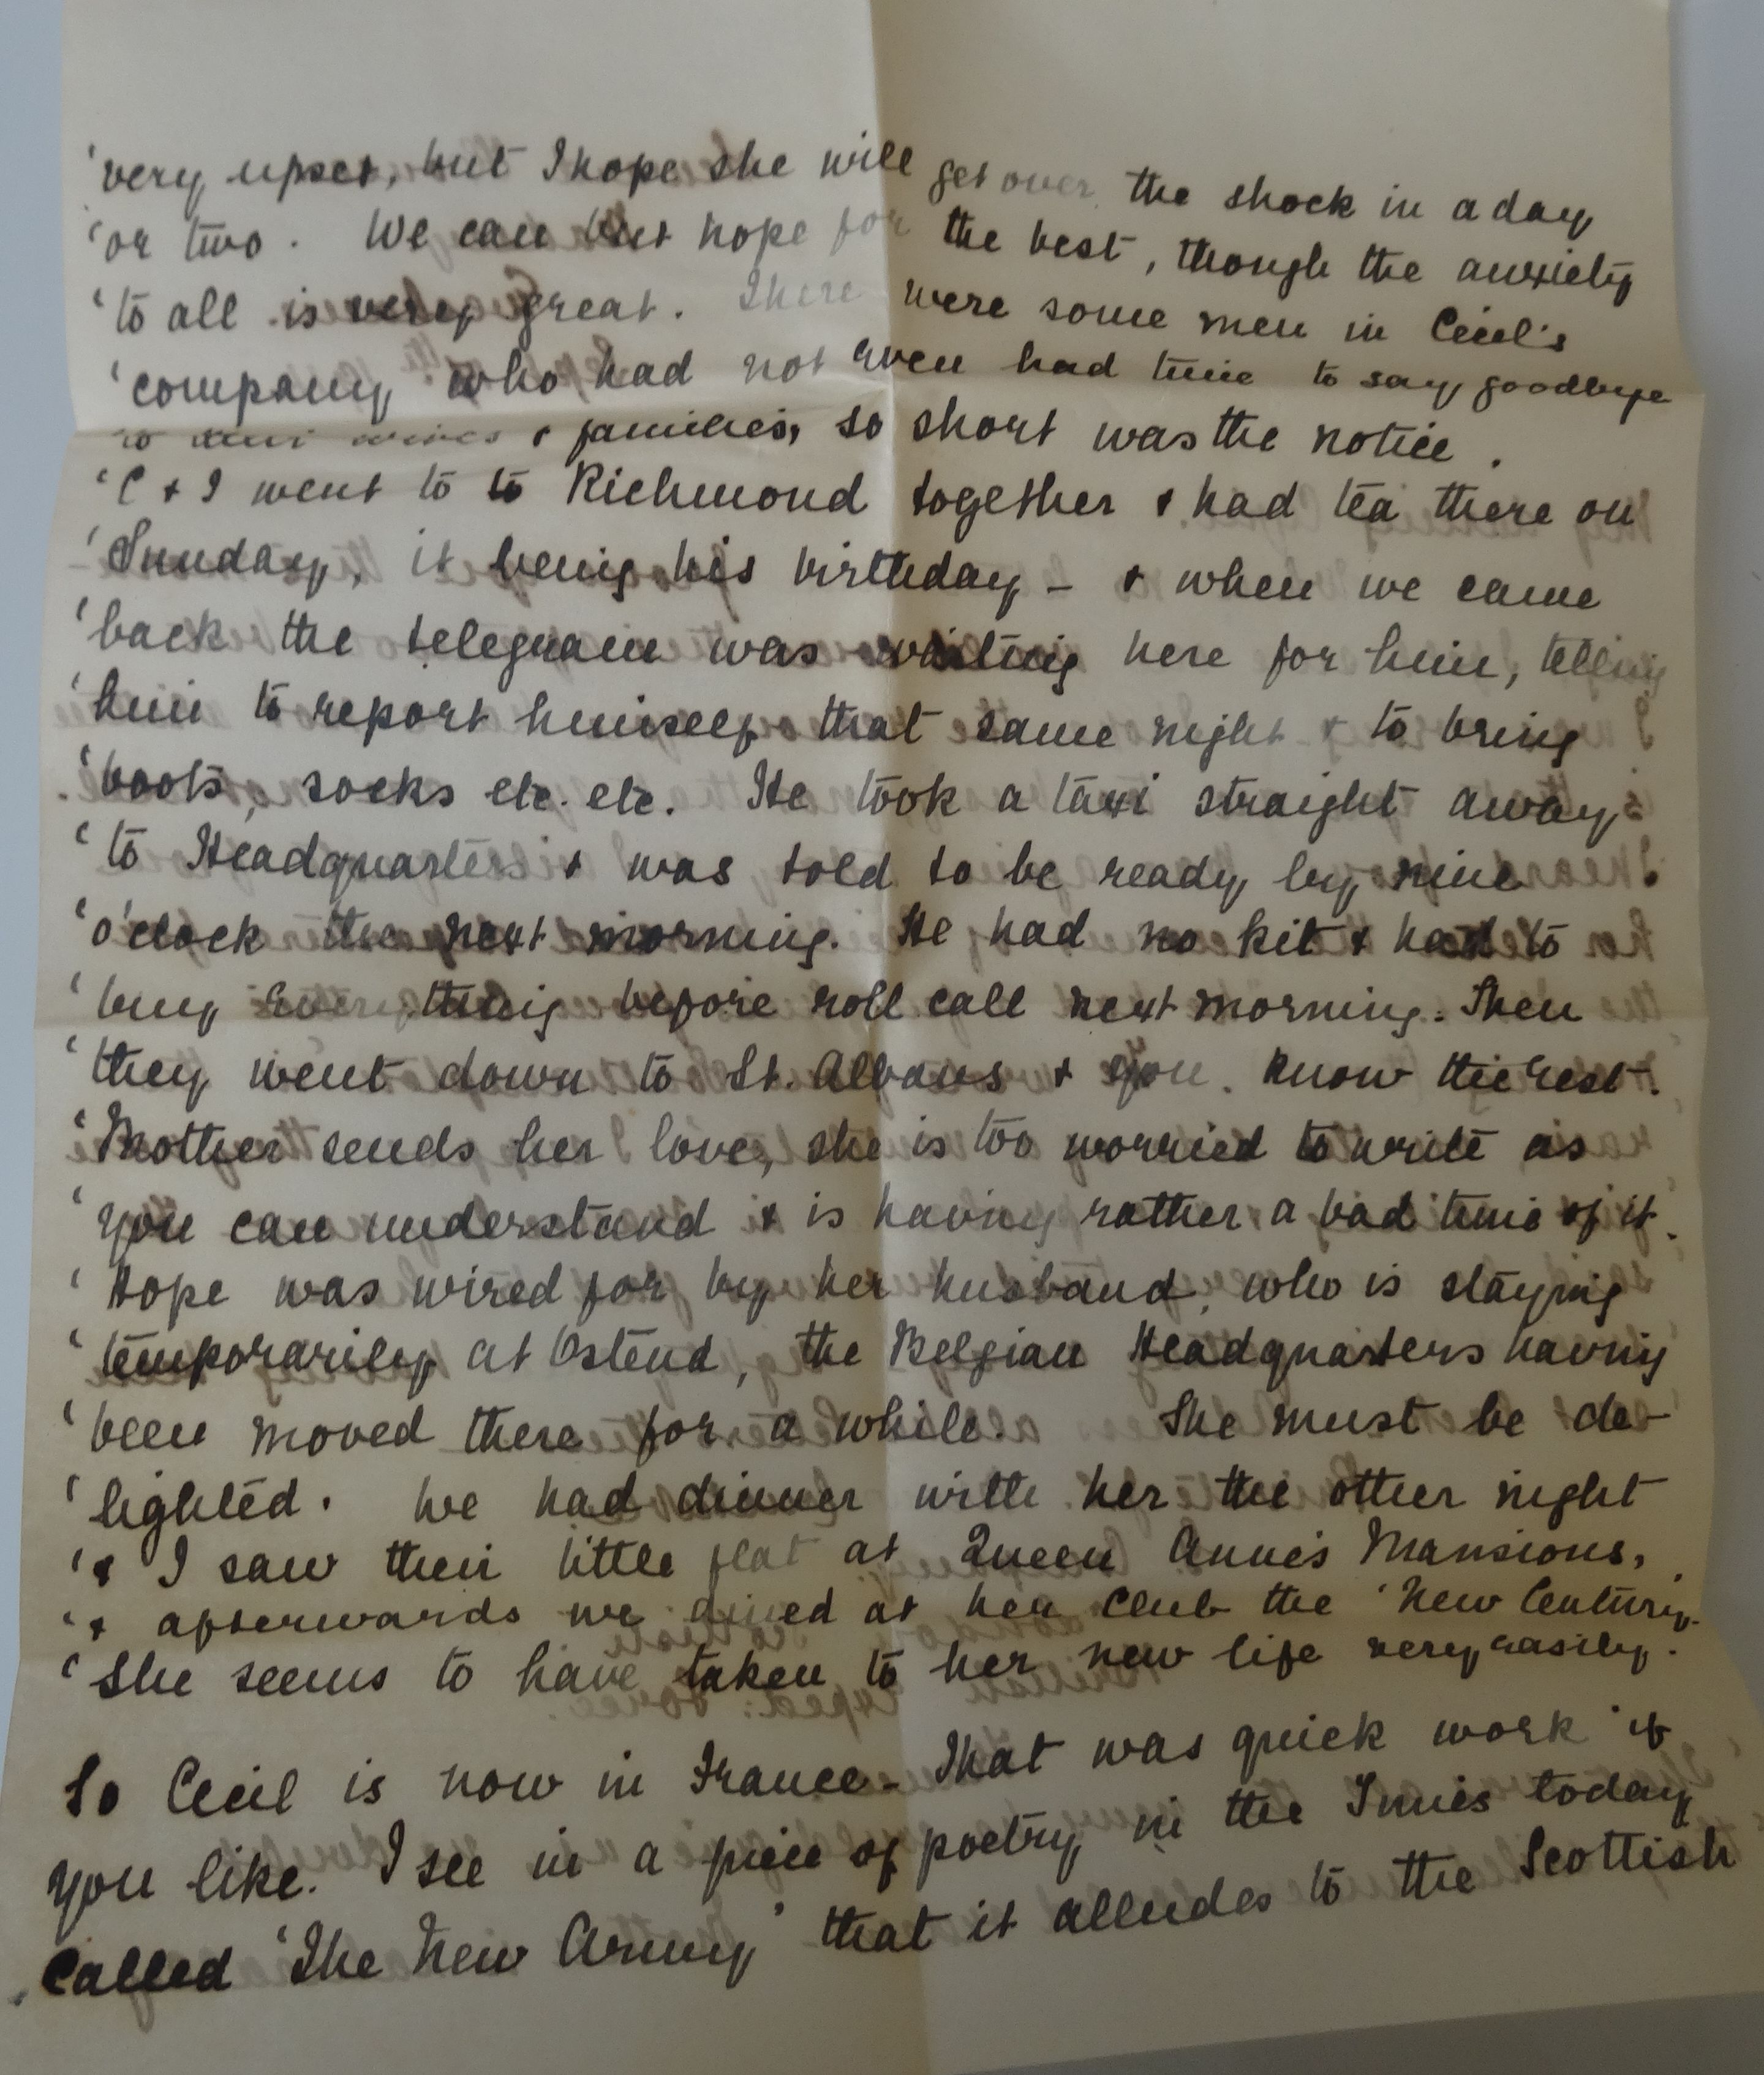 'very upset, but I hope she will get over the shock in a day
'or two. We can but hope for the best, though the anxiety
'to all is very great. There were some men in Cecil's
'company who had not even had time to say goodbye
to their wives & families, so short was the notice.
'C & I went to to Richmond together & had tea there on
'Sunday, it being his birthday - & when we came
'back the telegram was waiting here for him, telling
'him to report himself that same night & to bring
'boots, socks etc. etc. He took a taxi straight away
'to Headquarters & was told to be ready by nine
'o'clock the next morning. He had no kit & had to
'buy everything before roll call next morning. Then
'they went down to St. Albans & you know the rest.
'Mother sends her love, she is too worried to write as
'you can understand & is having rather a bad time of it.
'Hope was wired for by her husband, who is staying
'temporarily at Ostend, the Belgian Headquarters having
'been moved there for a while. She must be de-
'lighted. We had dinner with her the other night
'& I saw their little flat at Queen Anne's Mansions,
'& afterwards we dined at her Club the 'New Century.
'She seems to have taken to her new life very easily.
So Cecil is now in France - That was quick work if
you like. I see in a piece of poetry in the Times today
called 'The New Army' that it alludes to the Scottish